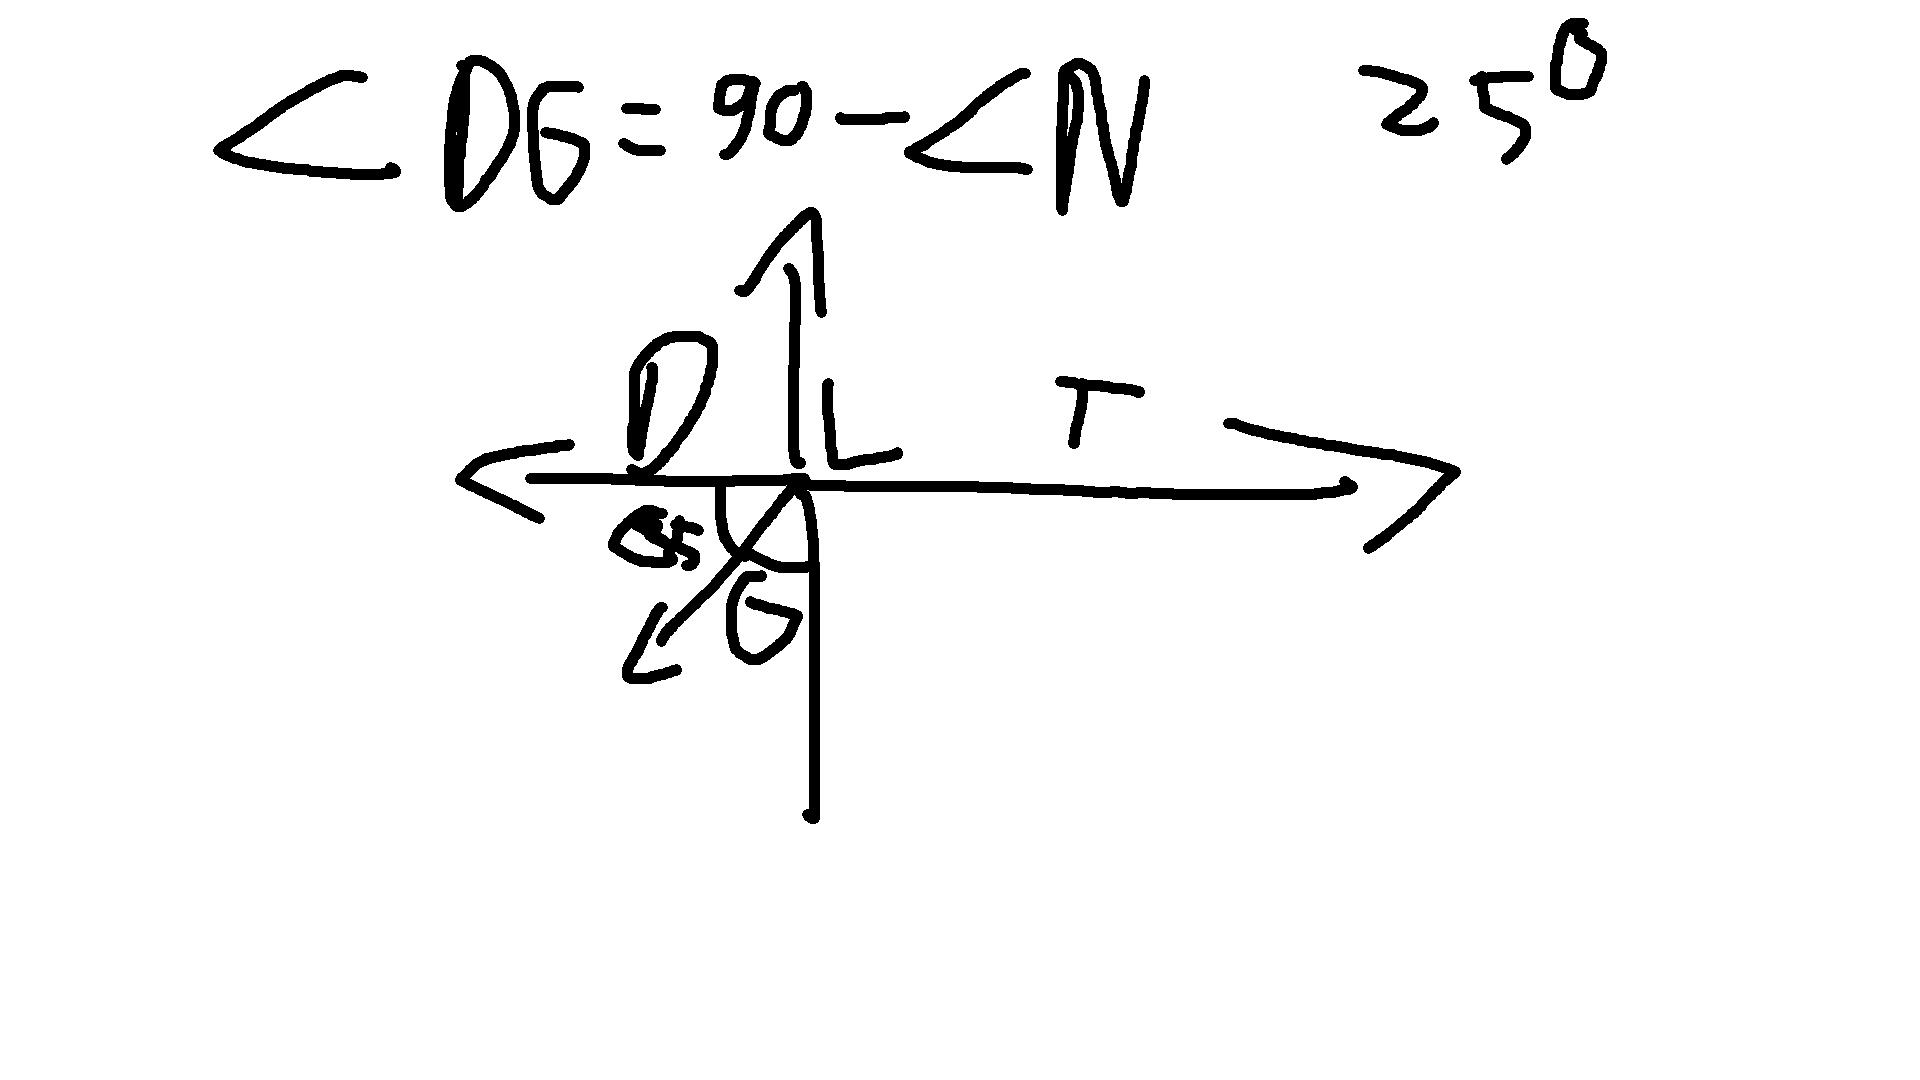 <DG = 90 - <N 25⁰
D
L T
G